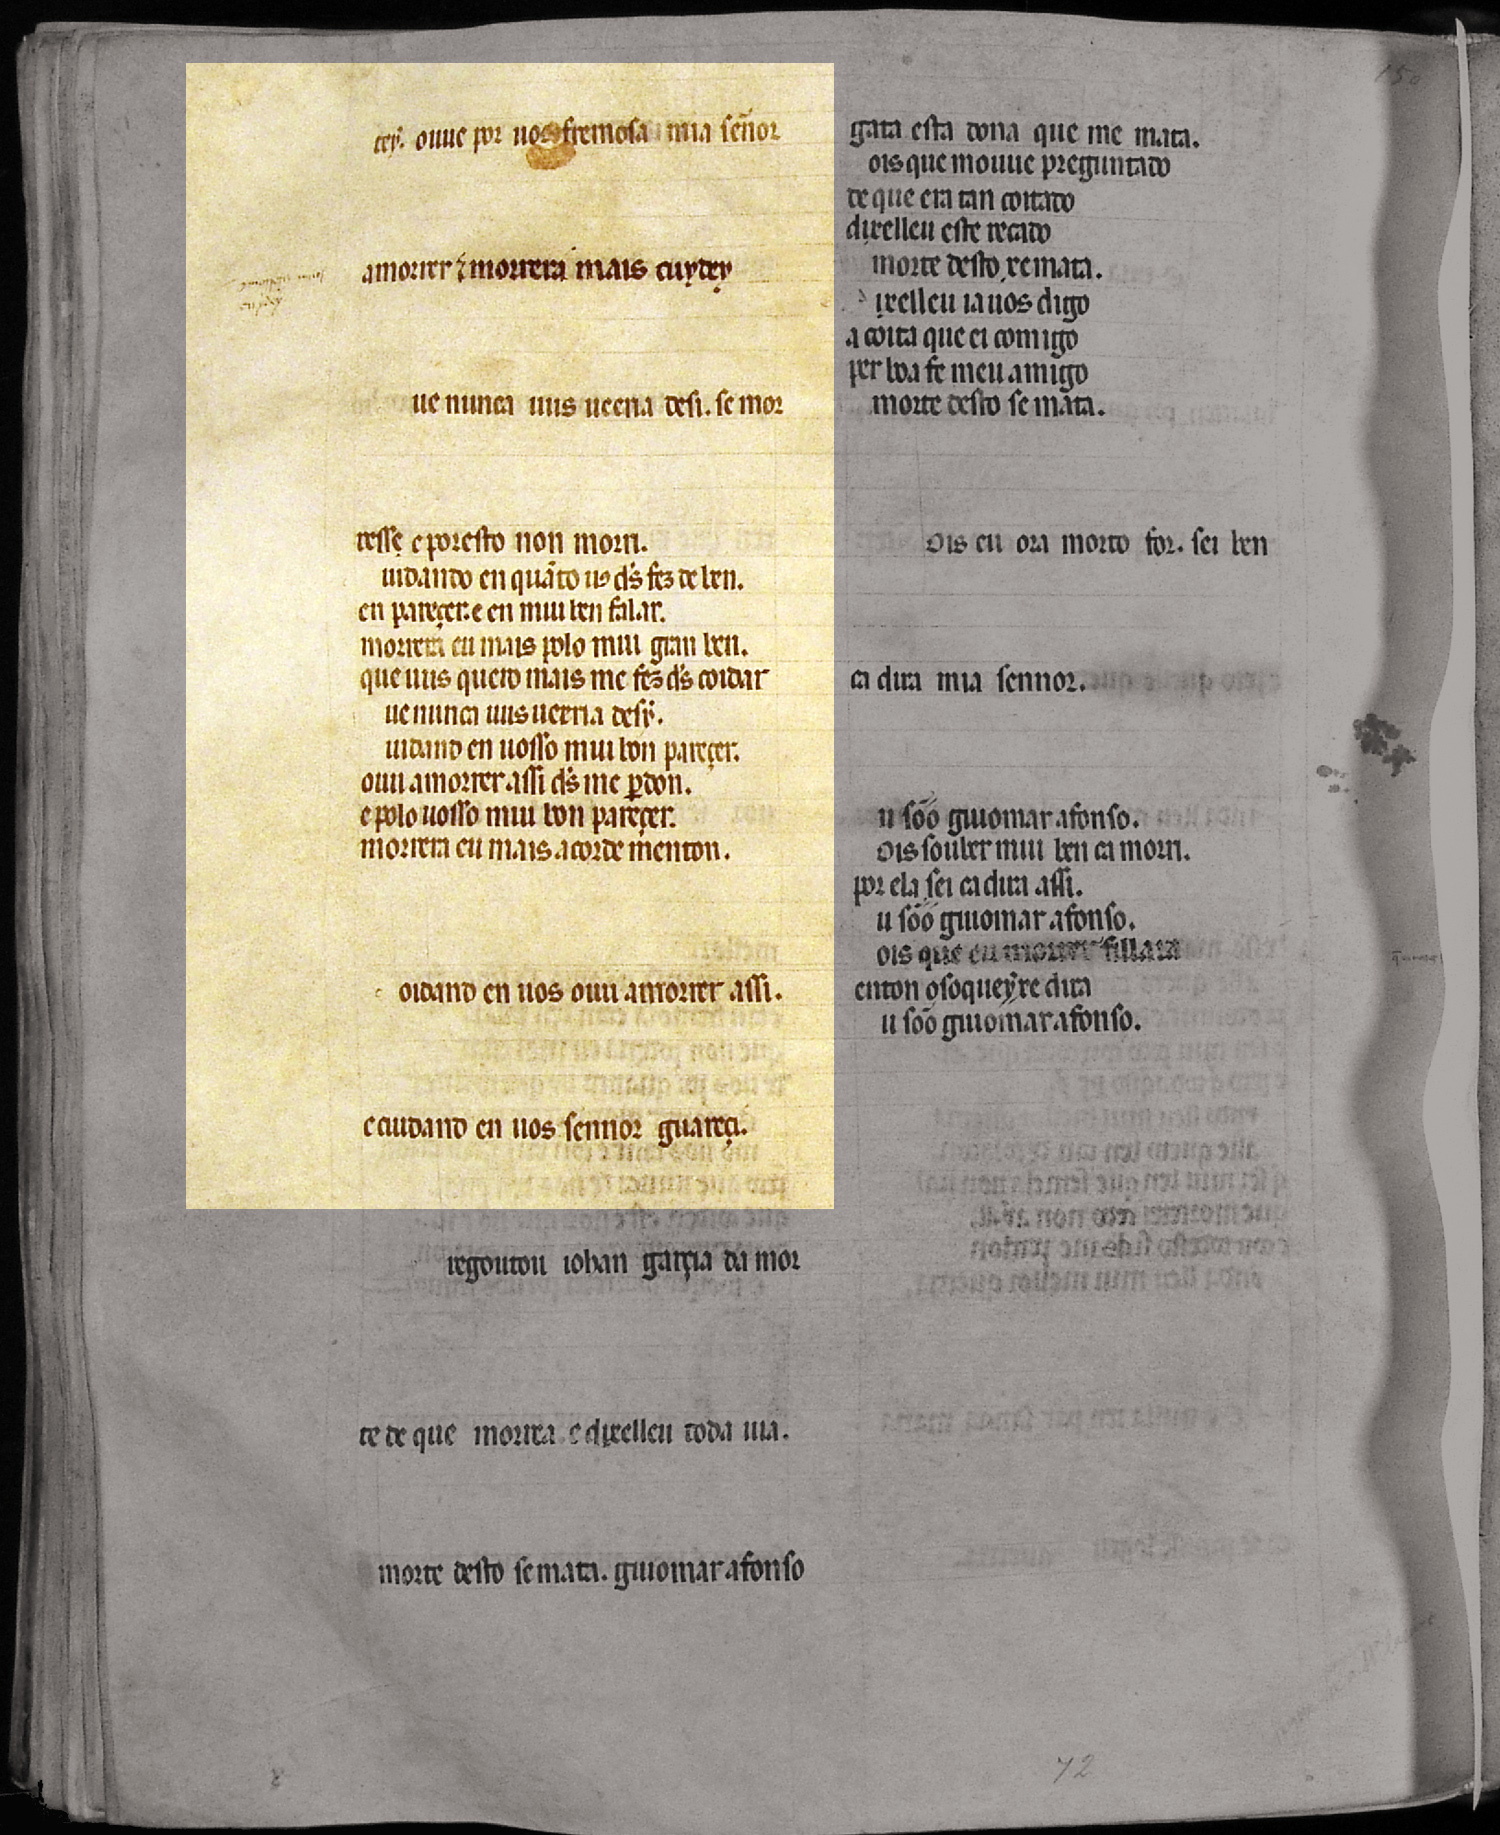 tey. ouue por uos fremosa mia señor
amorrer ⁊ morrera mais cuydey
ue nunca uus ueeria desi. se mor
resse e poresto non morri.
uidando en quãto uꝯ d's fez de ben.
en pareçer. e en mui ben falar.
morrera eu mais polo mui gran ben.
que uus quero mais me fez d's coidar
ue nunca uus ueeria desy.
uidand en uosso mui bon pareçer.
oui amorrer assi d's me ꝑdon.
e polo uosso mui bon pareçer.
morrera eu mais acorde menton.
oidand en uos oui amorrer assi.
e cuidand en uos sennor guareçi.
regoutou iohan garçia da mor
te de que morria e dixelleu toda uia.
morte desto se mata. guiomar afonso
gata esta dona que me mata.
ois que mouue preguntado
de que era tan coitado
dixelleu este recado
morte desto xe mata.
ixelleu ia uos digo
a coita que ei comigo
per boa fe meu amigo
morte desto se mata.
ois eu ora morto for. sei ben
ca dira mia sennor.
u sõo guiomar afonso.
ois souber mui ben ca morri.
por ela sei ca dira assi.
u sõo guiomar afonso.
ois que eu morrer fillara
enton o soqueyxe dira
u sõo guiomar afonso.
72